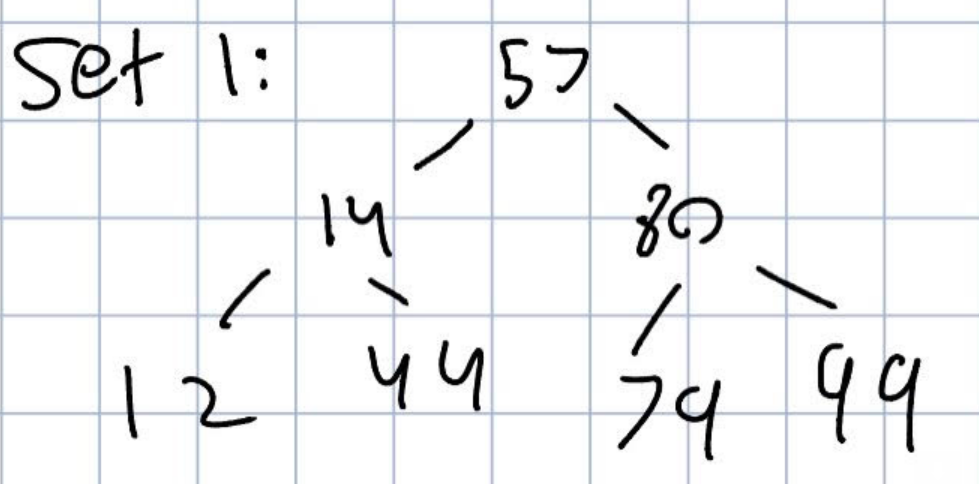 Set 1: 57
14 80
12 44 79 99